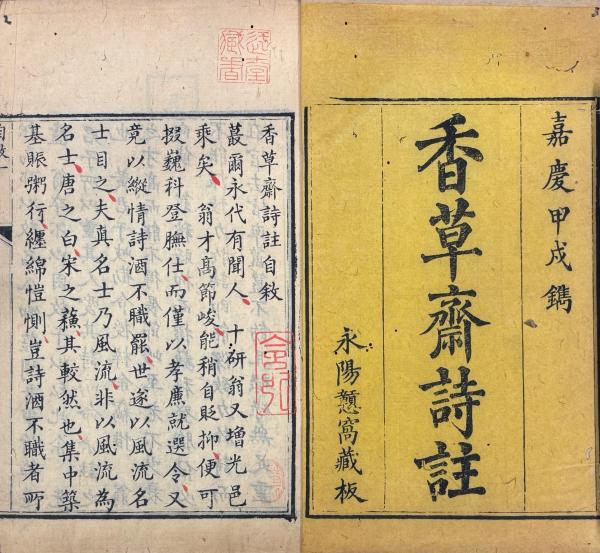 嘉慶甲戌鐫
香草齋詩註
永陽憩窩藏板
香草齋詩註自敘
蕞爾永代有聞人十研翁又增光邑
乘矣翁才高節峻能稍自貶抑便可
掇巍科登膴仕而僅以孝廉就選令又
竟以縱情詩酒不職罷世遂以風流名
士目之夫真名士乃風流非以風流為
名士唐之白宋之蘓其較然也集中築
基賑粥行纏綿愷惻豈詩酒不職者所